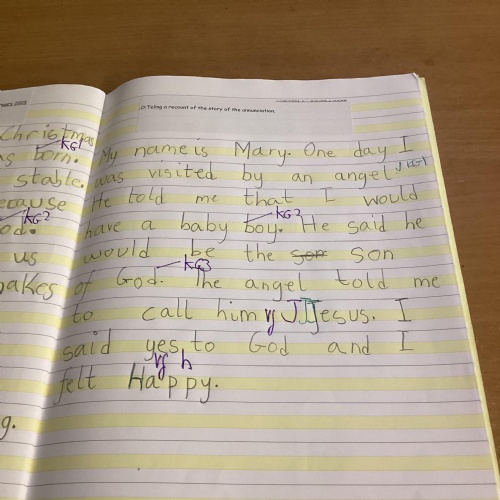 Christmas
born.
KG1
stable.
ecause
KG2
od.
us
akes
g.
D:Telling a recount of the story of the annunciation.
My name is Mary. One day I
was visited by an angel KG1
He told me that I would
KG2
have a baby boy. He said he
would be the son son
KG3
of God. The angel told me
to call him Jesus. I
said yes to God and I
h
felt Happy.